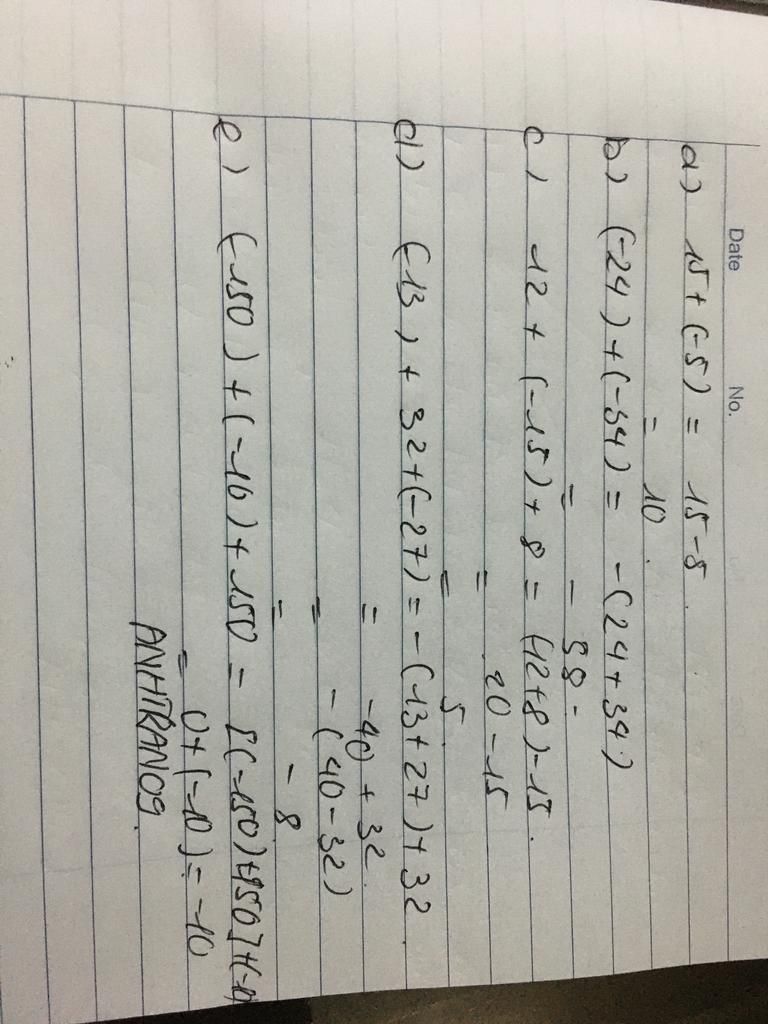 Date No.
a) 15+(-5) = 15-5.
= 10.
b) (-24)+(-34) = -(24+34)
= -58.
c) 12 + (-15) + 8 = (12+8)-15.
= 20-15
= 5
d) (-13) + 32+(-27) = -(13+27)+32.
= -40 + 32.
= -(40-32)
= -8
e) (-150) + (-10) + 150 = [(-150)+150]+(-10)
= 0+(-10) = -10
ANHTRAN09.